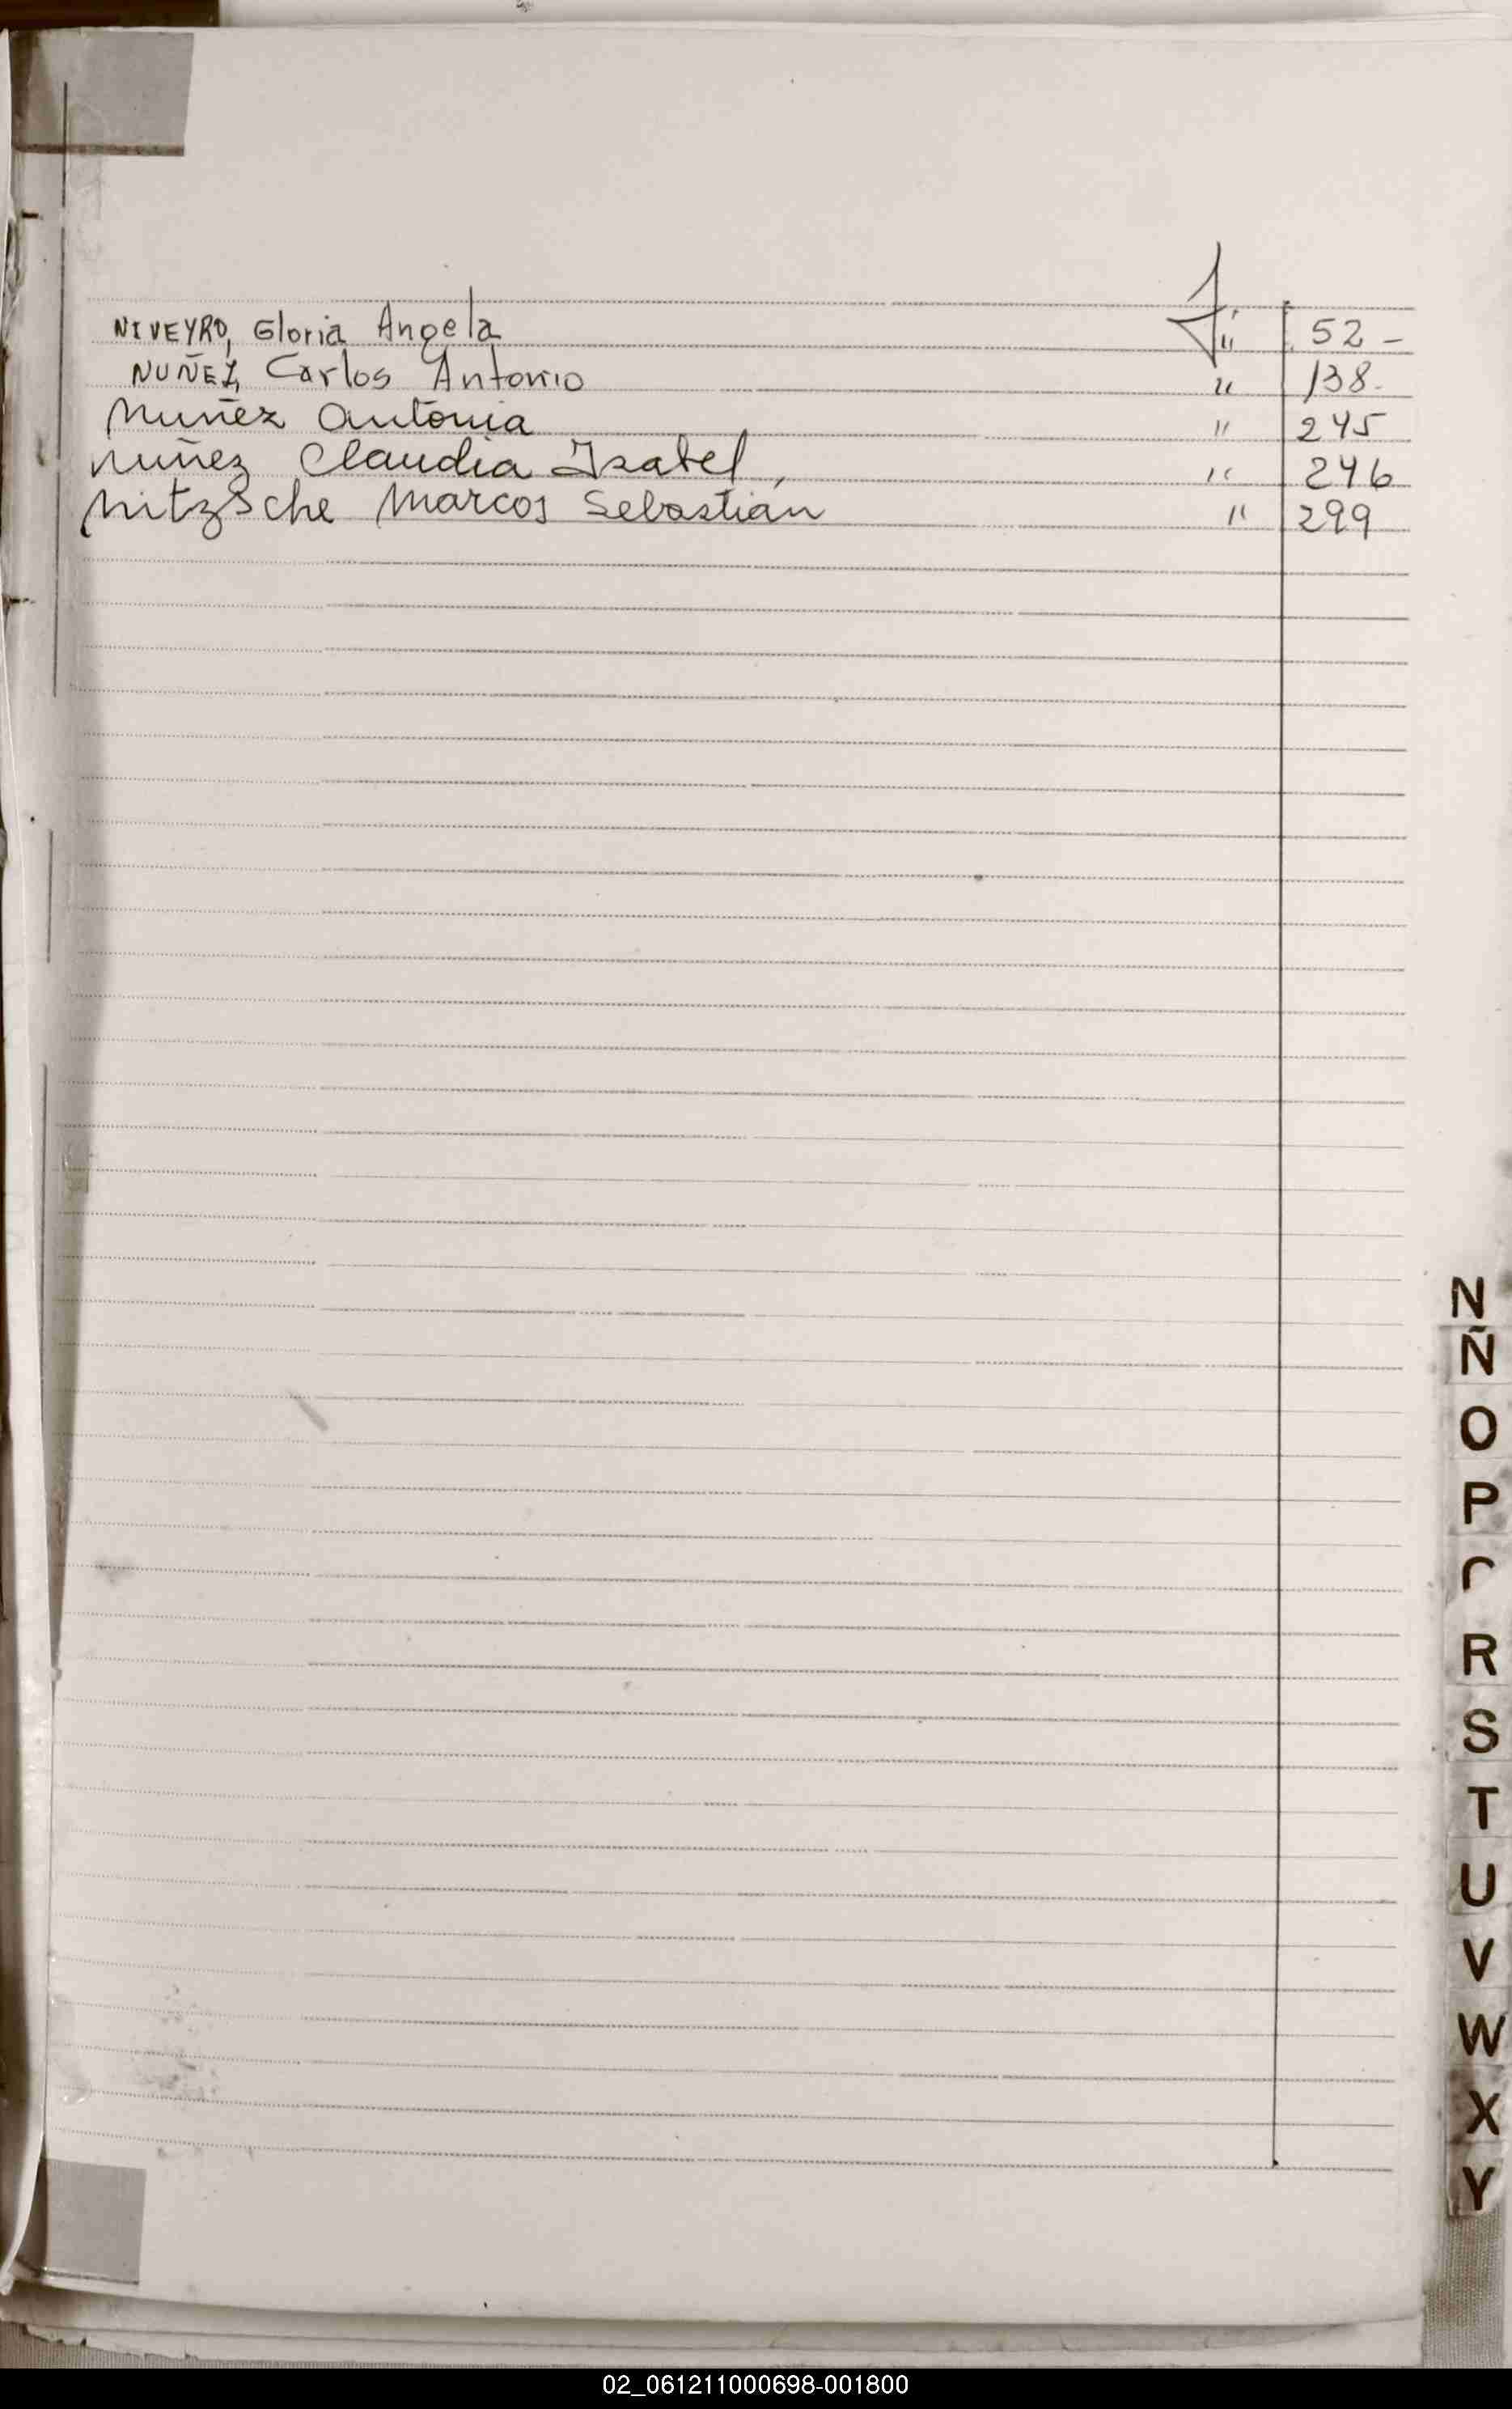 NIVEYRO, Gloria Angela " 52 -
NUÑEZ, Carlos Antonio " 138-
Nuñez Antonia " 245
nuñez Claudia Isabel, " 246
Nitzsche Marcos Sebastián " 299
N
Ñ
O
P
R
S
T
U
V
W
X
Y
02_061211000698-001800